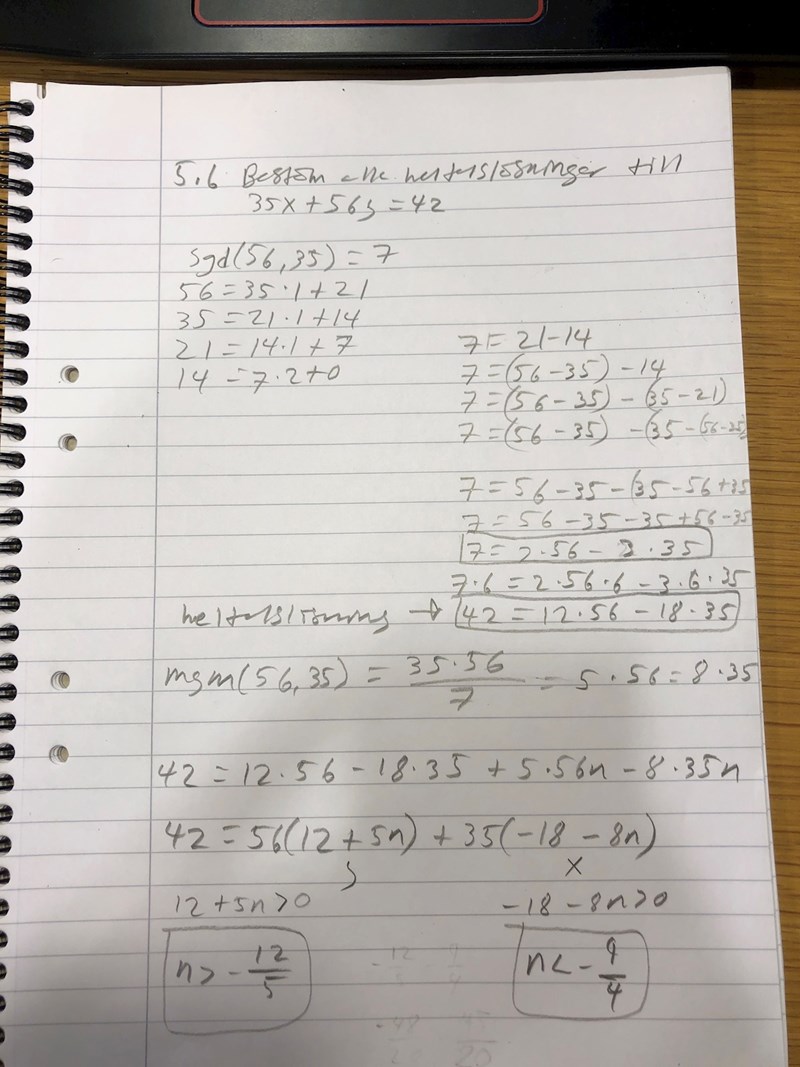 5.6 Bestäm alla heltalslösningar till
35x + 56y = 42
sgd(56,35) = 7
56 = 35·1 + 21
35 = 21·1 + 14
21 = 14·1 + 7
14 = 7·2+0
7 = 21-14
7 = (56-35) - 14
7 = (56-35) - (35-21)
7 = (56-35) - (35-(56-35)
7 = 56-35-(35-56+35
7 = 56-35-35+56-35
7 = 2·56 - 3·35
7·6 = 2·56·6 - 3·6·35
heltalslösning → 42 = 12·56 - 18·35
mgm(56,35) = 35·56/7 = 5·56 = 8·35
42 = 12·56 - 18·35 + 5·56n - 8·35n
42 = 56(12 + 5n) + 35(-18 - 8n)
y x
12 + 5n > 0 -18 - 8n > 0
n > - 12/5 n < - 9/4